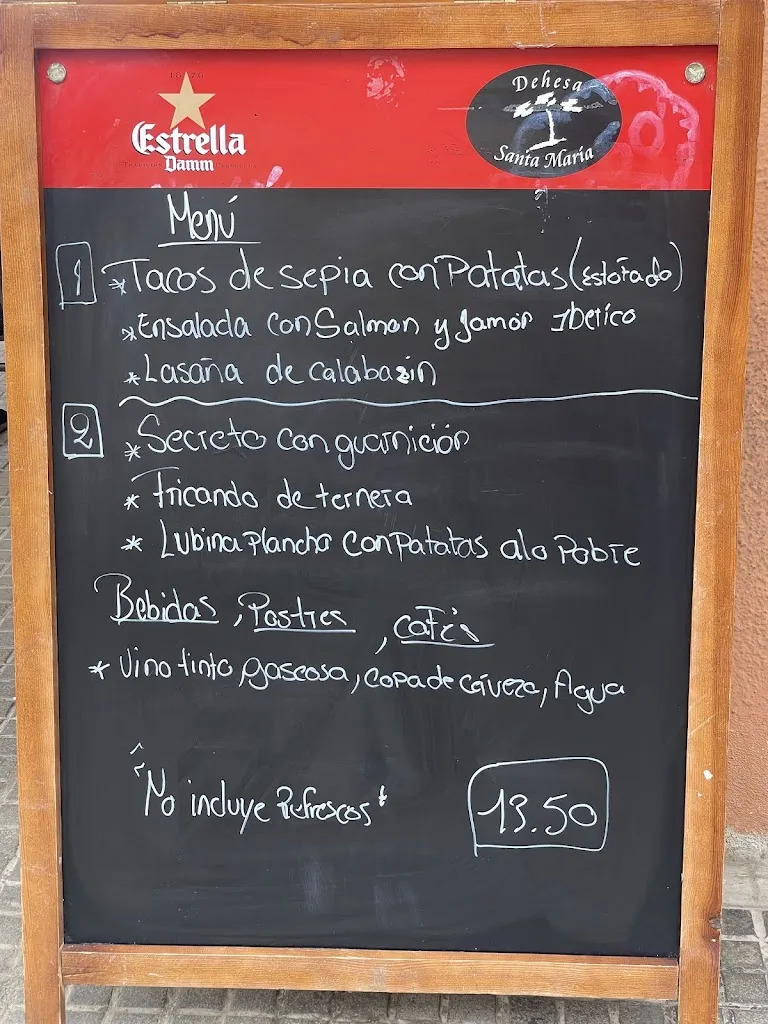 1876
Estrella
Damm
Dehesa
Santa María
Menú
1 *Tacos de sepia con Patatas (Estofado)
*Ensalada con Salmon y Jamon Iberico
*Lasaña de calabasin
2 *Secreto con guarnición
*Fricando de ternera
* Lubina Plancha con patatas a lo Pobre
Bebidas, Postres, Cafés
* Vino tinto, gaseosa, copa de cerveza, Agua
"No incluye Refrescos"
13.50